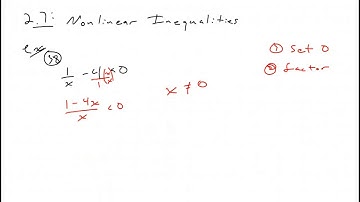 2.7: Nonlinear Inequalities
ex 38
1/x - 4 < 0
① Set 0
② factor
(1-4x)/x < 0
x ≠ 0